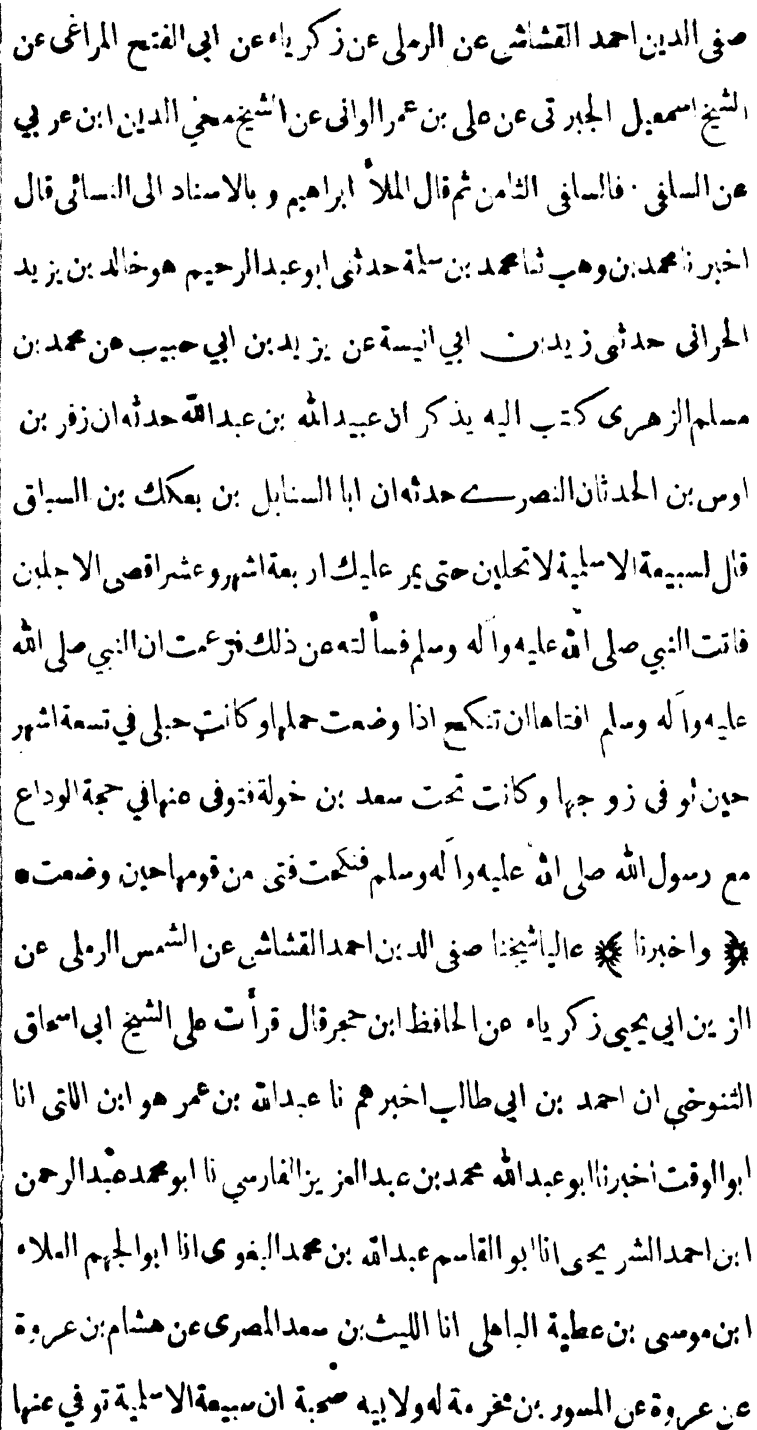 صفى الدين احمد القشاشى عن الرملى عن زكرياء عن ابى الفتح المراغى عن
الشيخ اسمعيل الجبرتى عن على بن عمر الوانى عن الشيخ محي الدين ابن عربي
عن السلفى . فالسلفى الثامن ثم قال الملأ ابراهيم و بالاسناد الى النسائى قال
اخبرنا محمد بن وهب ثنا محمد بن سلمة حدثنى ابو عبد الرحيم هو خالد بن يزيد
الحرانى حدثنى زيد بن ابي انيسة عن يزيد بن ابي حبيب عن محمد بن
مسلم الزهرى كتب اليه يذكر ان عبيد الله بن عبد الله حدثه ان زفر بن
اوس بن الحدثان النصرے حدثه ان ابا السنابل بن بعكك بن السباق
قال لسبيعة الاسلمية لا تحلين حتى يمر عليك اربعة اشهر وعشر اقصى الاجلين
فاتت النبي صلى الله عليه وآله وسلم فسألته عن ذلك فزعمت ان النبي صلى الله
عليه وآله وسلم افتاها ان تنكح اذا وضعت حملها وكانت حبلى في تسعة اشهر
حين توفى زوجها وكانت تحت سعد بن خولة فتوفى عنها في حجة الوداع
مع رسول الله صلى الله عليه وآله وسلم فنكحت فتى من قومها حين وضعت *
﴿ واخبرنا ﴾ عاليا شيخنا صفى الدين احمد القشاشى عن الشمس الرملى عن
الزين ابي يحيى زكرياء عن الحافظ ابن حجر قال قرأت على الشيخ ابى اسحاق
التنوخى ان احمد بن ابي طالب اخبرهم نا عبد الله بن عمر هو ابن اللتى انا
ابو الوقت اخبرنا ابو عبد الله محمد بن عبد العزيز الفارسي نا ابو محمد عبد الرحمن
ابن احمد الشريحى انا ابو القاسم عبد الله بن محمد البغوى انا ابو الجهم العلاء
ابن موسى بن عطية الباهلى انا الليث بن سعد المصرى عن هشام بن عروة
عن عروة عن المسور بن مخرمة له ولابيه صحبة ان سبيعة الاسلمية توفي عنها